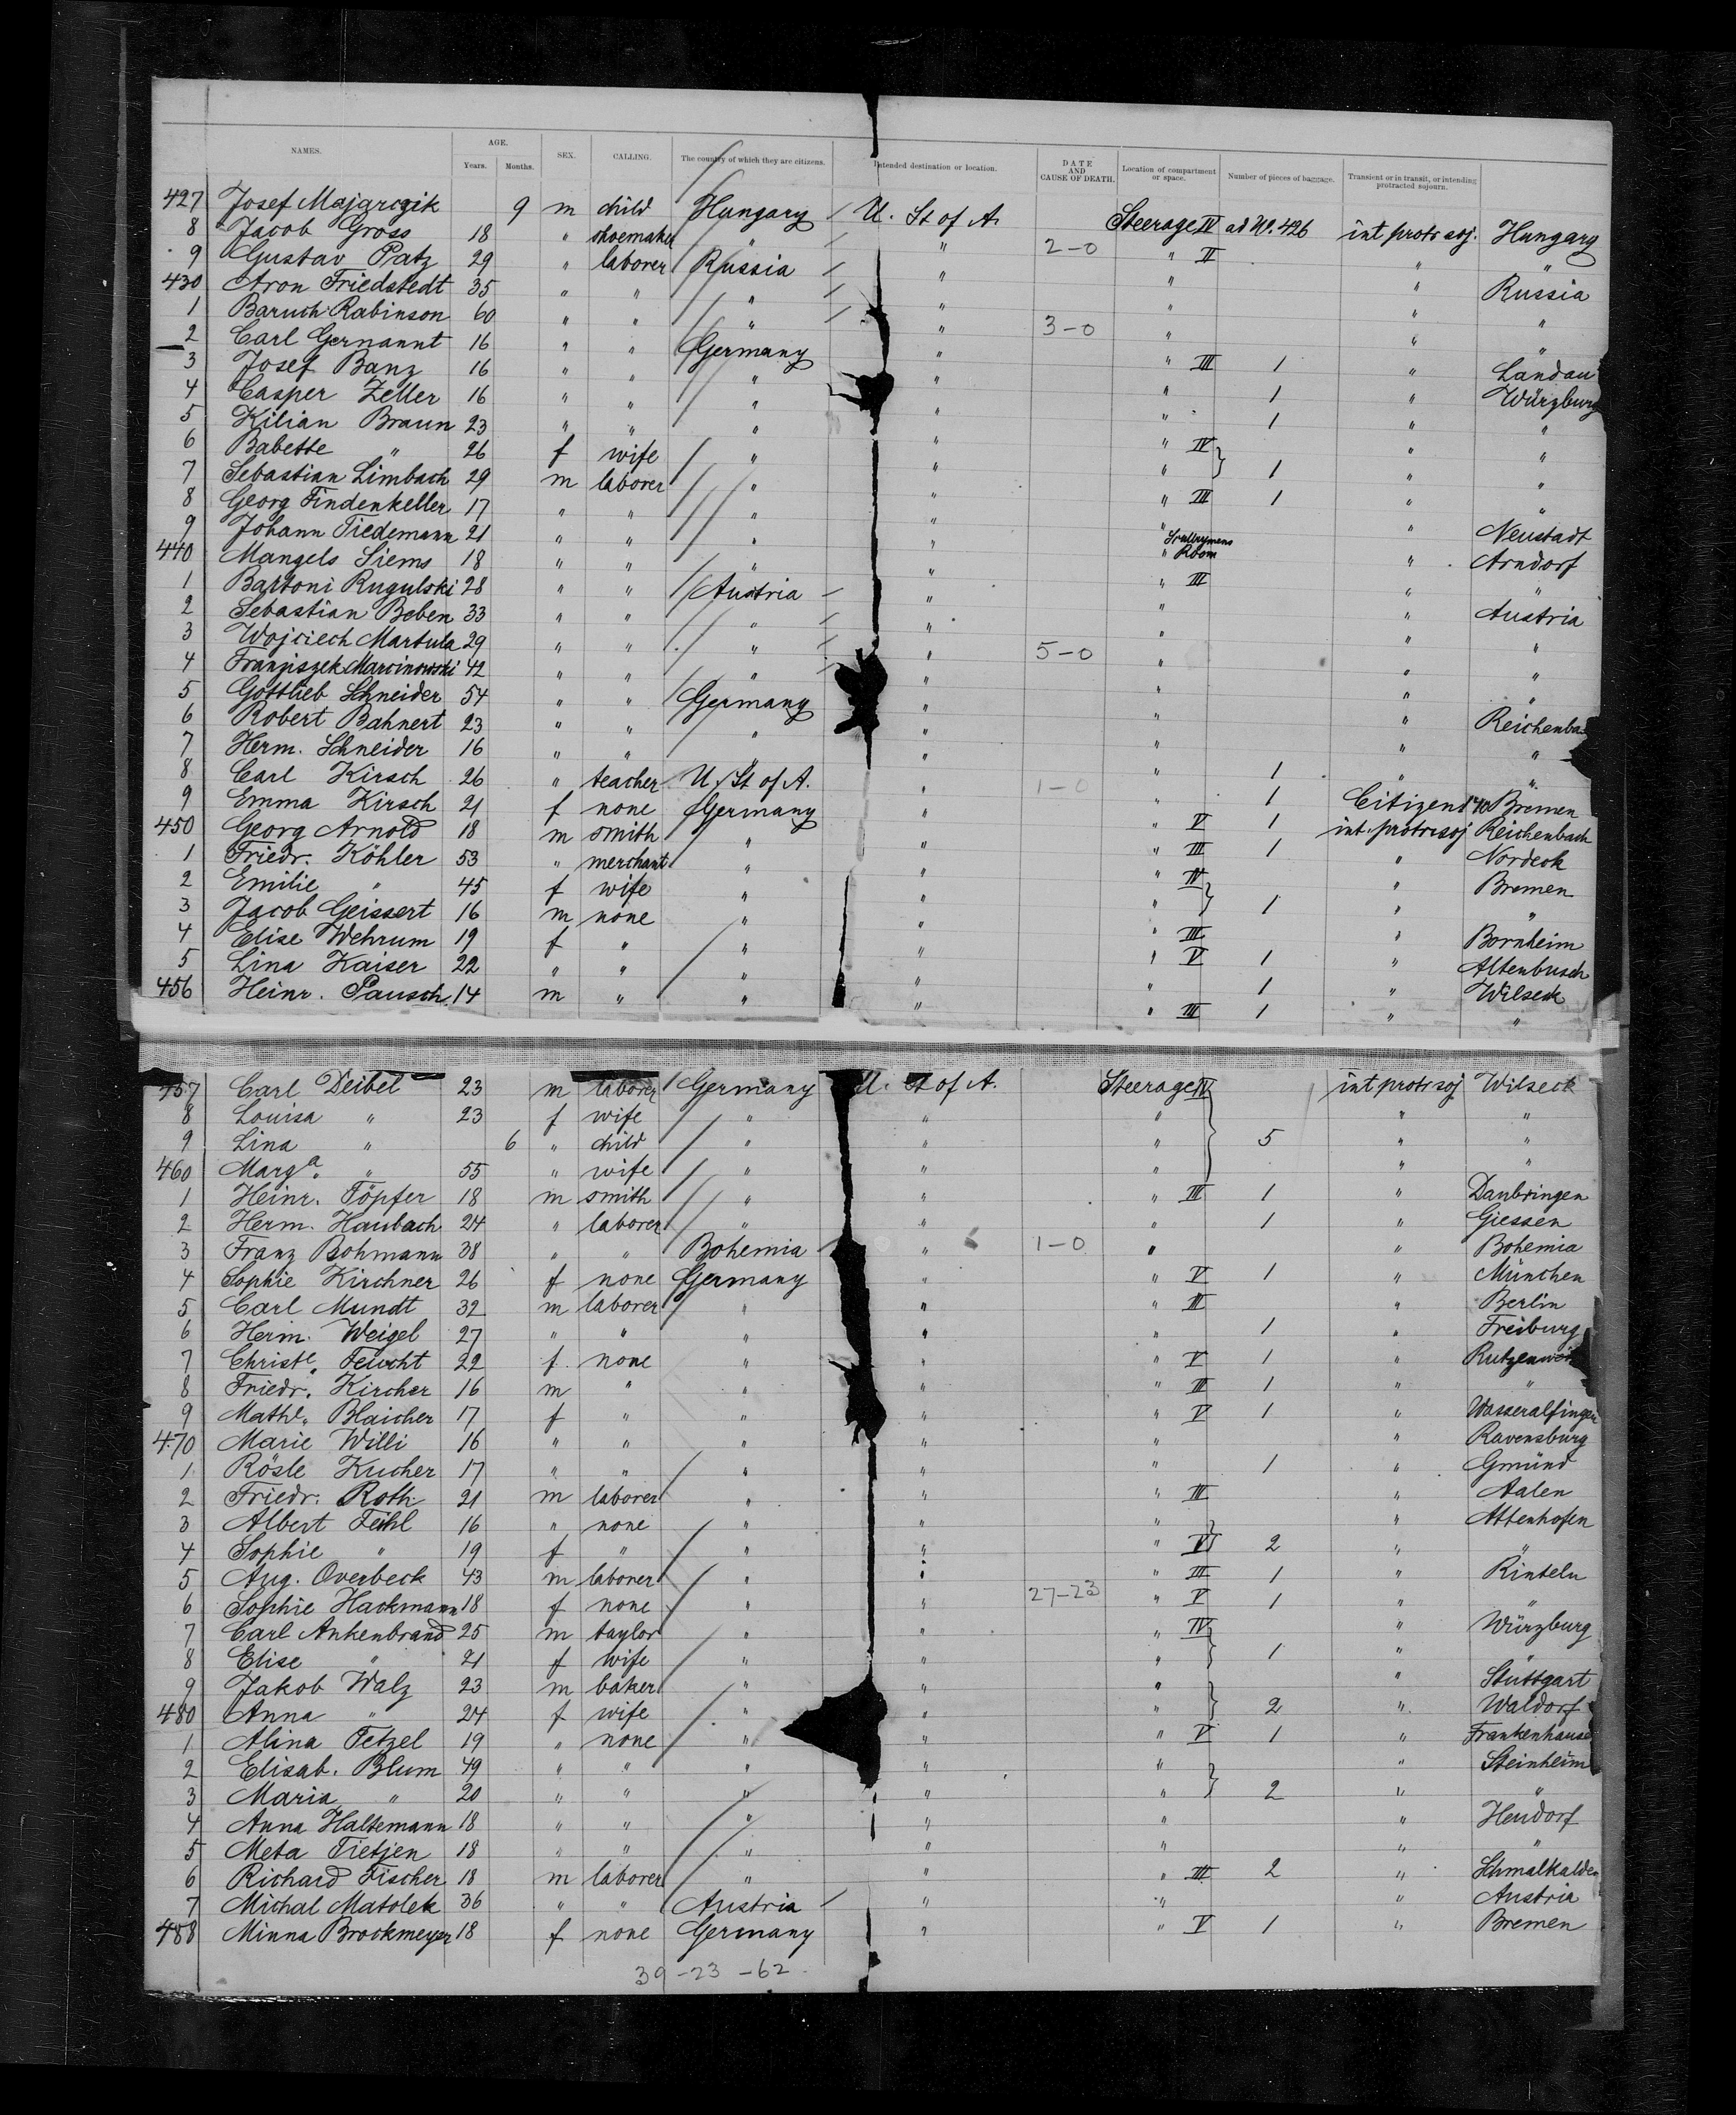 NAMES. AGE. Years. Months. SEX. CALLING. The country of which they are citizens. Intended destination or location. DATE AND CAUSE OF DEATH. Location of compartment or space. Number of pieces of baggage. Transient or in transit, or intending protracted sojourn.
427 Josef Majarczik 9 m child Hungary U. St of A. Steerage IV ad No. 426 int protr soj. Hungary
8 Jacob Gross 18 " shoemaker " " 2-0 " II " "
9 Gustav Patz 29 " laborer Russia " " " Russia
430 Aron Friedstedt 35 " " " " " " "
1 Baruch Rabinson 60 " " " " 3-0 " " "
2 Carl Gernannt 16 " " Germany " " III 1 " Landau
3 Josef Banz 16 " " " " " 1 " Würzburg
4 Casper Zeller 16 " " " " " 1 " "
5 Kilian Braun 23 " " " " " IV " "
6 Babette " 26 f wife " " " 1 " "
7 Sebastian Limbach 29 m laborer " " " III 1 " "
8 Georg Findenkeller 17 " " " " " " Neustadt
9 Johann Tiedemann 21 " " " " " Room " Arndorf
440 Mangels Siems 18 " " " " " III " "
1 Bartoni Rugulski 28 " " Austria " " " Austria
2 Sebastian Boben 33 " " " " " " "
3 Wojciech Martula 29 " " " " 5-0 " " "
4 Franziszek Marcinowski 42 " " " " " " "
5 Gottlieb Schneider 54 " " Germany " " " Reichenba
6 Robert Bahnert 23 " " " " " " "
7 Herm. Schneider 16 " " " " " 1 " "
8 Carl Kirsch 26 " teacher U. St of A. " 1-0 " 1 Citizen Bremen
9 Emma Kirsch 21 f none Germany " " V 1 int. protr soj Reichenbach
450 Georg Arnold 18 m smith " " " III 1 " Nordeck
1 Friedr. Köhler 53 " merchant " " " IV " Bremen
2 Emilie " 45 f wife " " " 1 " "
3 Jacob Geissert 16 m none " " " III " Bornheim
4 Elise Wehrum 19 f " " " " V 1 " Altenbusch
5 Lina Kaiser 22 " " " " " 1 " Wilseck
456 Heinr. Pausch 14 m " " " " III 1 " "
457 Carl Deibel 23 m laborer Germany U. St of A. Steerage IV int protr soj Wilseck
8 Louisa " 23 f wife " " " " "
9 Lina " 6 " child " " " 5 " "
460 Marga. " 55 " wife " " " " "
1 Heinr. Töpfer 18 m smith " " " III 1 " Danbringen
2 Herm. Haubach 24 " laborer " " " 1 " Giessen
3 Franz Bohmann 38 " " Bohemia " 1-0 " " Bohemia
4 Sophie Kirchner 26 f none Germany " " V 1 " München
5 Carl Mundt 32 m laborer " " " III " Berlin
6 Herm. Weigel 27 " " " " " 1 " Freiburg
7 Christe. Feucht 22 f none " " " V 1 "
8 Friedr. Kircher 16 m " " " " III 1 " "
9 Mathe. Blaicher 17 f " " " " V 1 " Wasseralfingen
470 Marie Willi 16 " " " " " " Ravensburg
1 Rösle Kucher 17 " " " " " 1 " Gmünd
2 Friedr. Roth 21 m laborer " " " III " Aalen
3 Albert Feihl 16 " none " " " " Attenhofen
4 Sophie " 19 f " " " " V 2 " "
5 Aug. Overbeck 43 m laborer " " " III 1 " Rinteln
6 Sophie Hackmann 18 f none " " 27-23 " V 1 " "
7 Carl Ankenbrand 25 m taylor " " " IV " Würzburg
8 Elise " 21 f wife " " " 1 " "
9 Jakob Walz 23 m baker " " " " Stuttgart
480 Anna " 24 f wife " " " 2 " Waldorf
1 Alina Tetzel 19 " none " " " V 1 " Frankenhause
2 Elisab. Blum 49 " " " " " " Steinheim
3 Maria " 20 " " " " " 2 " "
4 Anna Haltemann 18 " " " " " " Heudorf
5 Meta Tietjen 18 " " " " " " "
6 Richard Fischer 18 m laborer " " " III 2 " Schmalkalden
7 Michal Matolek 36 " " Austria " " " Austria
488 Minna Brockmeyer 18 f none Germany " " V 1 " Bremen
39-23-62